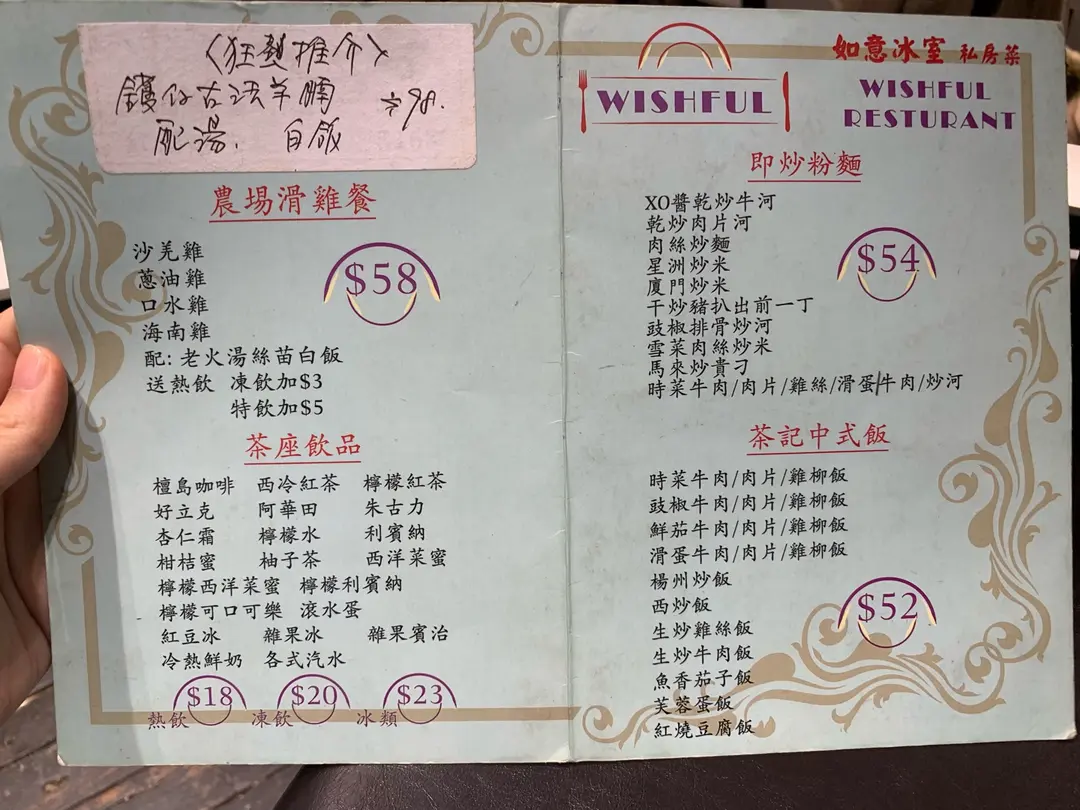 〈狂熱推介〉
鑊仔古法羊腩 $98.
配湯. 白飯
農場滑雞餐
沙羌雞
蔥油雞
口水雞
海南雞
$58
配: 老火湯絲苗白飯
送熱飲 凍飲加$3
特飲加$5
茶座飲品
檀島咖啡 西冷紅茶 檸檬紅茶
好立克 阿華田 朱古力
杏仁霜 檸檬水 利賓納
柑桔蜜 柚子茶 西洋菜蜜
檸檬西洋菜蜜 檸檬利賓納
檸檬可口可樂 滾水蛋
紅豆冰 雜果冰 雜果賓治
冷熱鮮奶 各式汽水
熱飲 $18 凍飲 $20 冰類 $23
WISHFUL
如意冰室 私房菜
WISHFUL
RESTURANT
即炒粉麵
XO醬乾炒牛河
乾炒肉片河
肉絲炒麵
星洲炒米
廈門炒米
干炒豬扒出前一丁
豉椒排骨炒河
雪菜肉絲炒米
馬來炒貴刁
時菜牛肉/肉片/雞絲/滑蛋牛肉/炒河
$54
茶記中式飯
時菜牛肉/肉片/雞柳飯
豉椒牛肉/肉片/雞柳飯
鮮茄牛肉/肉片/雞柳飯
滑蛋牛肉/肉片/雞柳飯
楊州炒飯
西炒飯
生炒雞絲飯
生炒牛肉飯
魚香茄子飯
芙蓉蛋飯
紅燒豆腐飯
$52